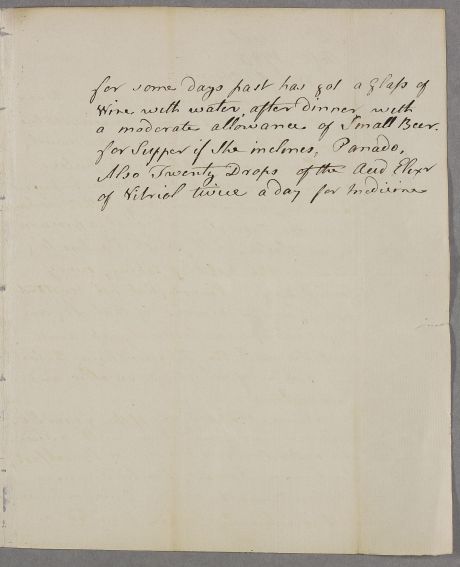 for some days past has got a Glass of
Wine with water after dinner with
a moderate allowance of Small Beer.
for Supper if She inclines, Panado,
Also Twenty Drops of the Acid Elixr
of Vitriol twice a day for Medicine